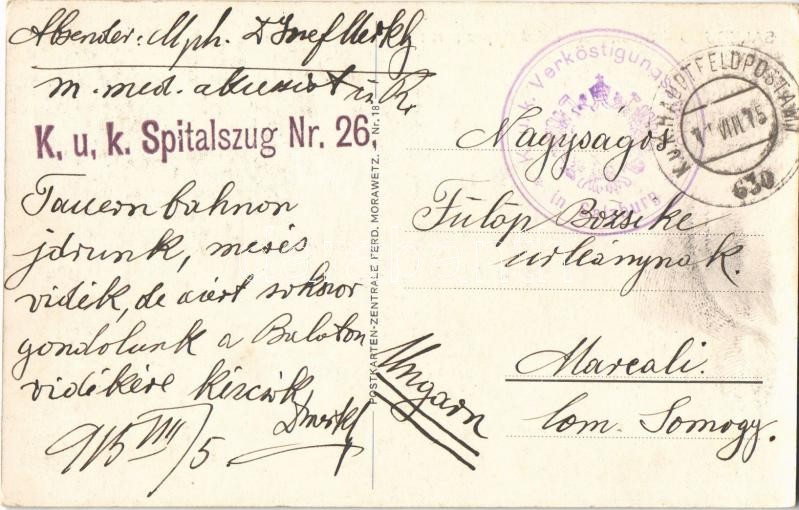 Absender: Mph. Dr Josef Merkly
m. med. akzessist
K. u. k. Spitalszug Nr. 26
Tauernbahnon
járunk, mesés
vidék, de azért sokszor
gondolunk a Balaton
vidékére kézcsók
915 VIII/5
POSTKARTEN-ZENTRALE FERD. MORAWETZ. — Nr. 18
K. u. k. Verköstigungs
in Salzburg
K.u.K. HAUPTFELDPOSTAMT
VIII 15
630
Nagyságos
Fülöp Bözsike
urleánynak.
Marcali.
Com. Somogy.
Ungarn